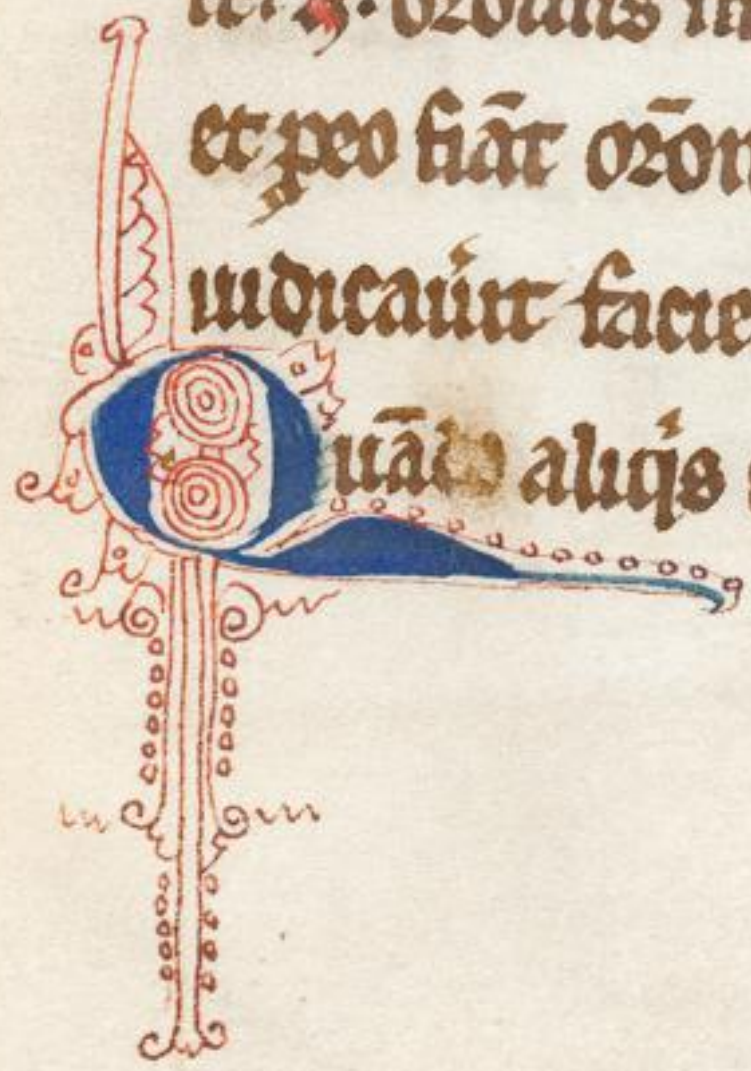 et peo fiāt orōn
iudicauīt facie
Quādo aliqis